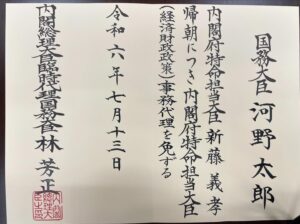 国務大臣 河野太郎
内閣府特命担当大臣 新藤義孝
帰朝につき内閣府特命担当大臣
(経済財政政策)事務代理を免ずる
令和六年七月十三日
内閣総理大臣臨時代理国務大臣 林芳正